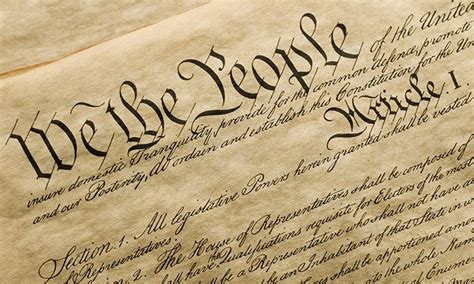 We the People of the United
insure domestic Tranquility, provide for the common defence, promote
and our Posterity, do ordain and establish this Constitution for the Un
Article. I.
Section. 1. All legislative Powers herein granted shall be vested
Representatives.
2. The House of Representatives shall be composed of
shall have Qualifications requisite for Electors of the most
Representative who shall not have
be an Inhabitant of that State in w
shall be apportioned among
whole Num